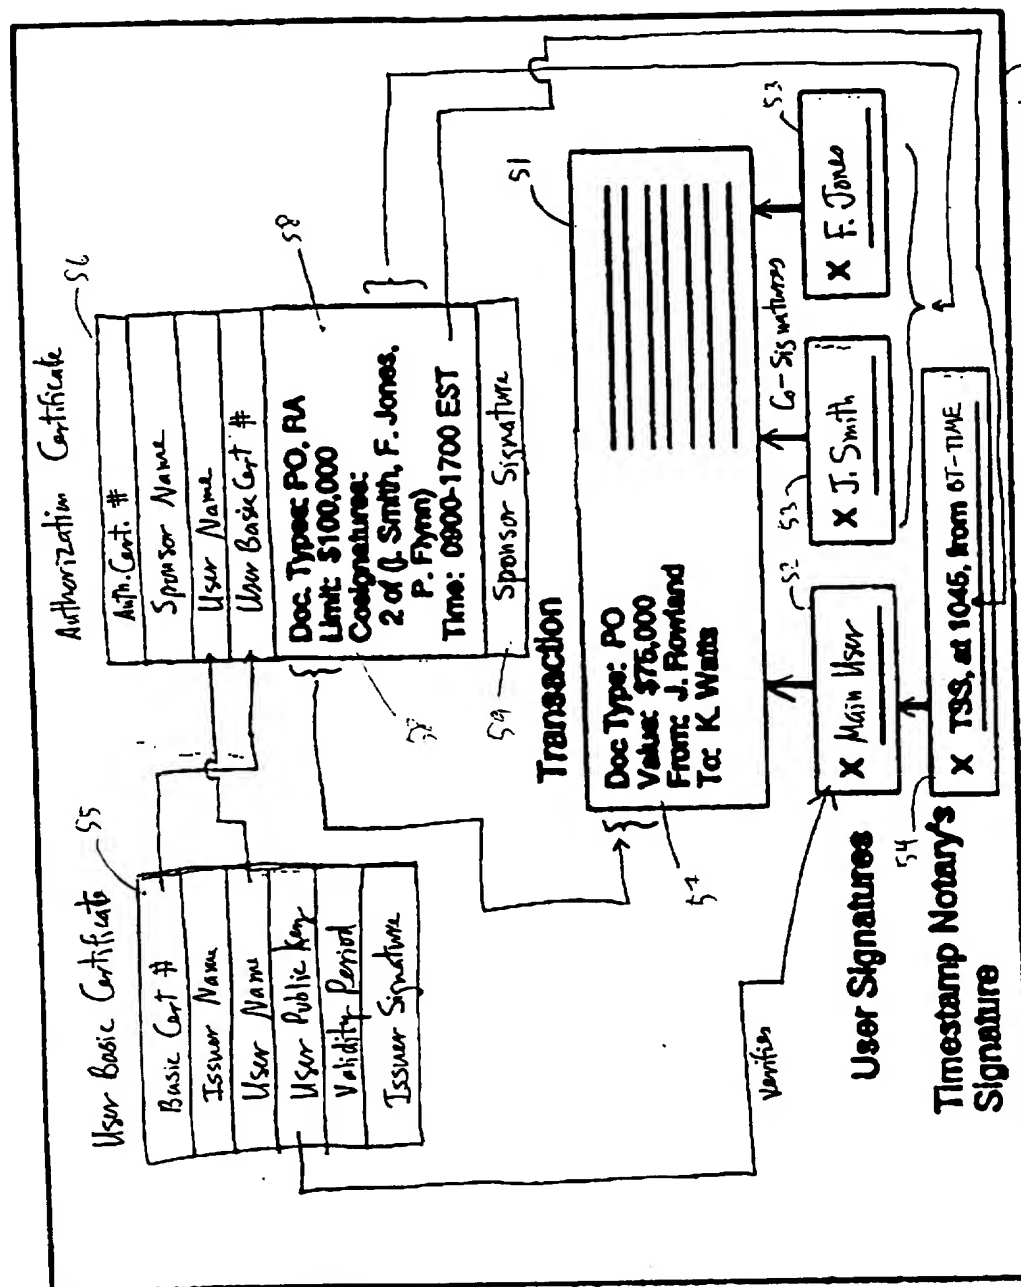 User Basic Certificate
55
Basic Cert #
Issuer Name
User Name
User Public Key
Validity Period
Issuer Signature
Authorization Certificate
56
Auth. Cert. #
Sponsor Name
User Name
User Basic Cert #
Doc. Types: PO, RA
Limit: $100.000
Cosignatures:
2 of (J. Smith, F. Jones,
P. Flynn)
Time: 0900-1700 EST
58
58
Sponsor Signature
59
Transaction
51
Doc Type: PO
Value: $75,000
From: J. Rowland
To: K. Watts
57
verifies
Co-Signatures
User Signatures
X Main User
52
X J. Smith
53
X F. Jones
53
Timestamp Notary's
Signature
54
X TSS, at 1045, from BT-TIME